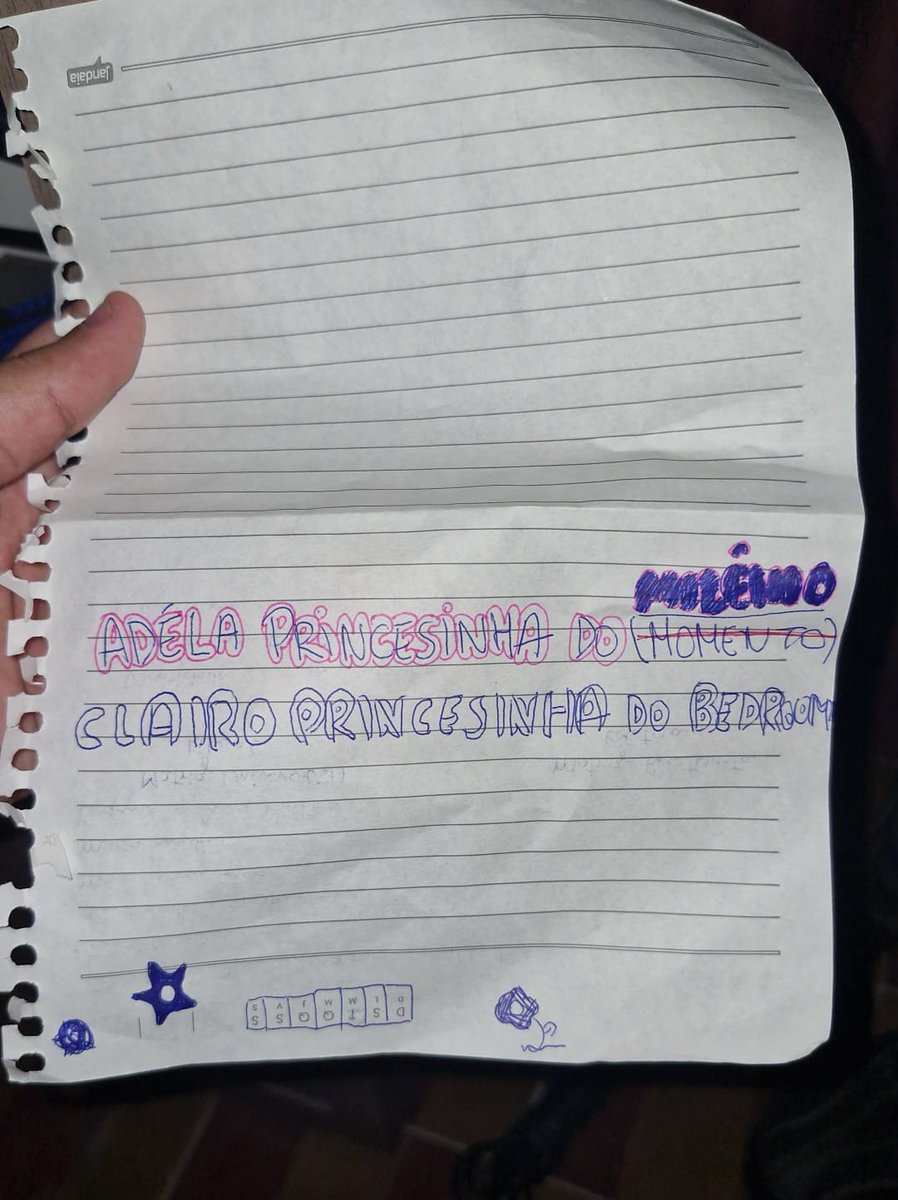 Jandaia
MILÊNIO
ADÉLA PRINCESINHA DO (MOMENTO)
CLAIRO PRINCESINHA DO BEDROOM
D S T Q Q S S
D L M M J V S